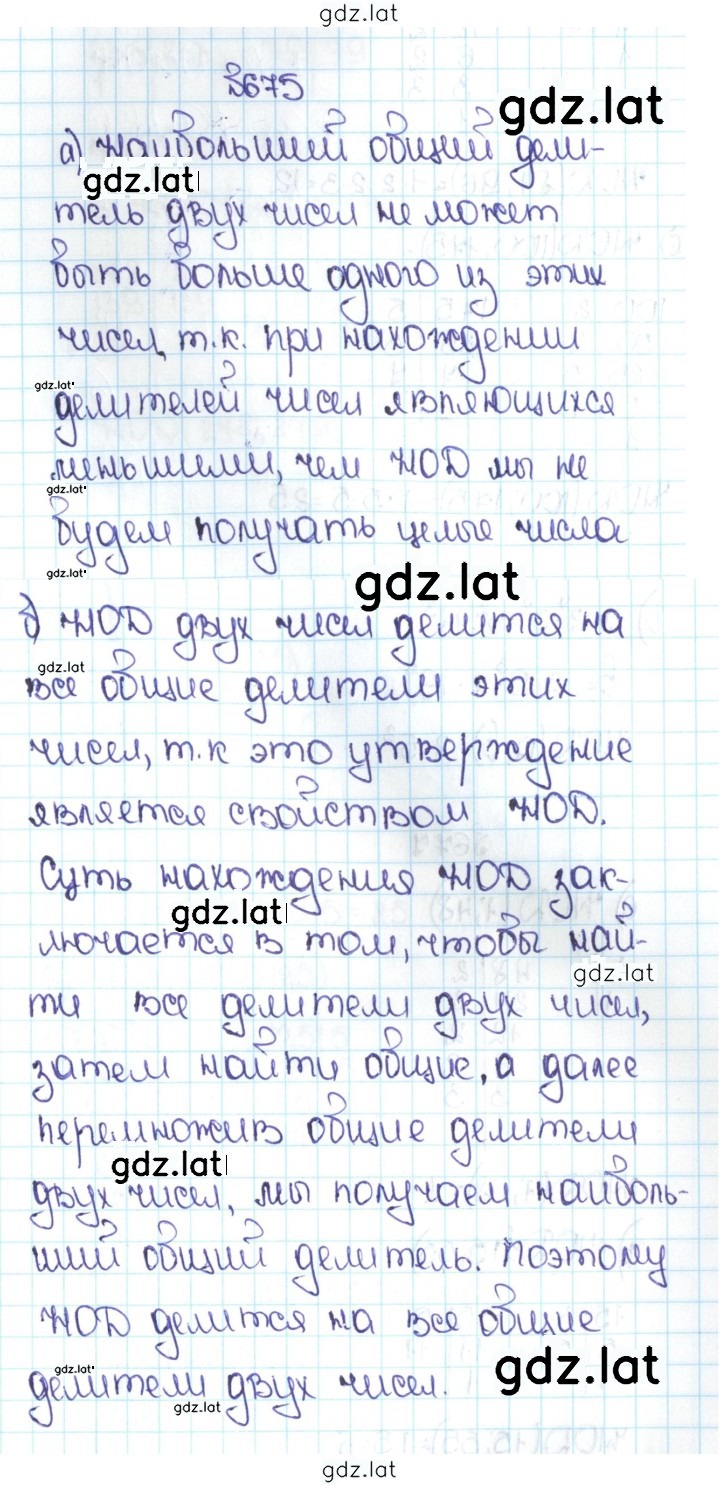 gdz.lat
3675
gdz.lat
а) Наибольший общий дели-
gdz.lat
тель двух чисел не может
быть больше одного из этих
чисел, т.к. при нахождении
gdz.lat
делителей чисел являющихся
меньшими, чем НОД мы не
gdz.lat
будем получать целые числа
gdz.lat
gdz.lat
б) НОД двух чисел делится на
gdz.lat
все общие делители этих
чисел, т.к это утверждение
является свойством НОД.
Суть нахождения НОД зак-
gdz.lat
лючается в том, чтобы най-
gdz.lat
ти все делители двух чисел,
затем найти общие, а далее
перемножив общие делители
gdz.lat
двух чисел, мы получаем наиболь-
ший общий делитель. Поэтому
НОД делится на все общие
gdz.lat
gdz.lat
делители двух чисел.
gdz.lat
gdz.lat